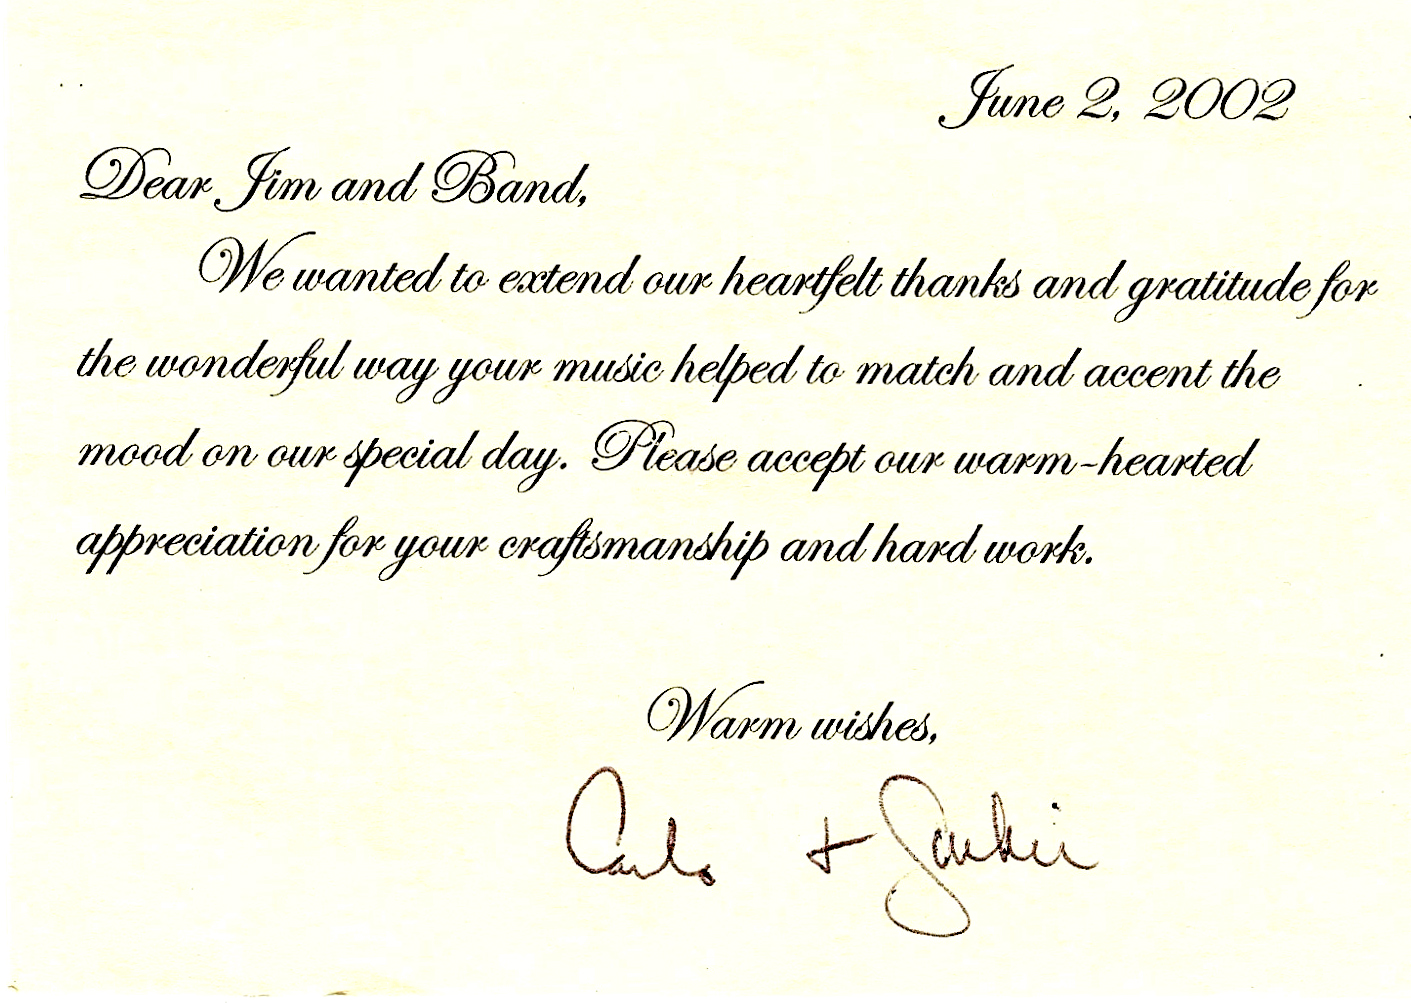 June 2, 2002
Dear Jim and Band,
We wanted to extend our heartfelt thanks and gratitude for
the wonderful way your music helped to match and accent the
mood on our special day. Please accept our warm-hearted
appreciation for your craftsmanship and hard work.
Warm wishes,
Carlo +